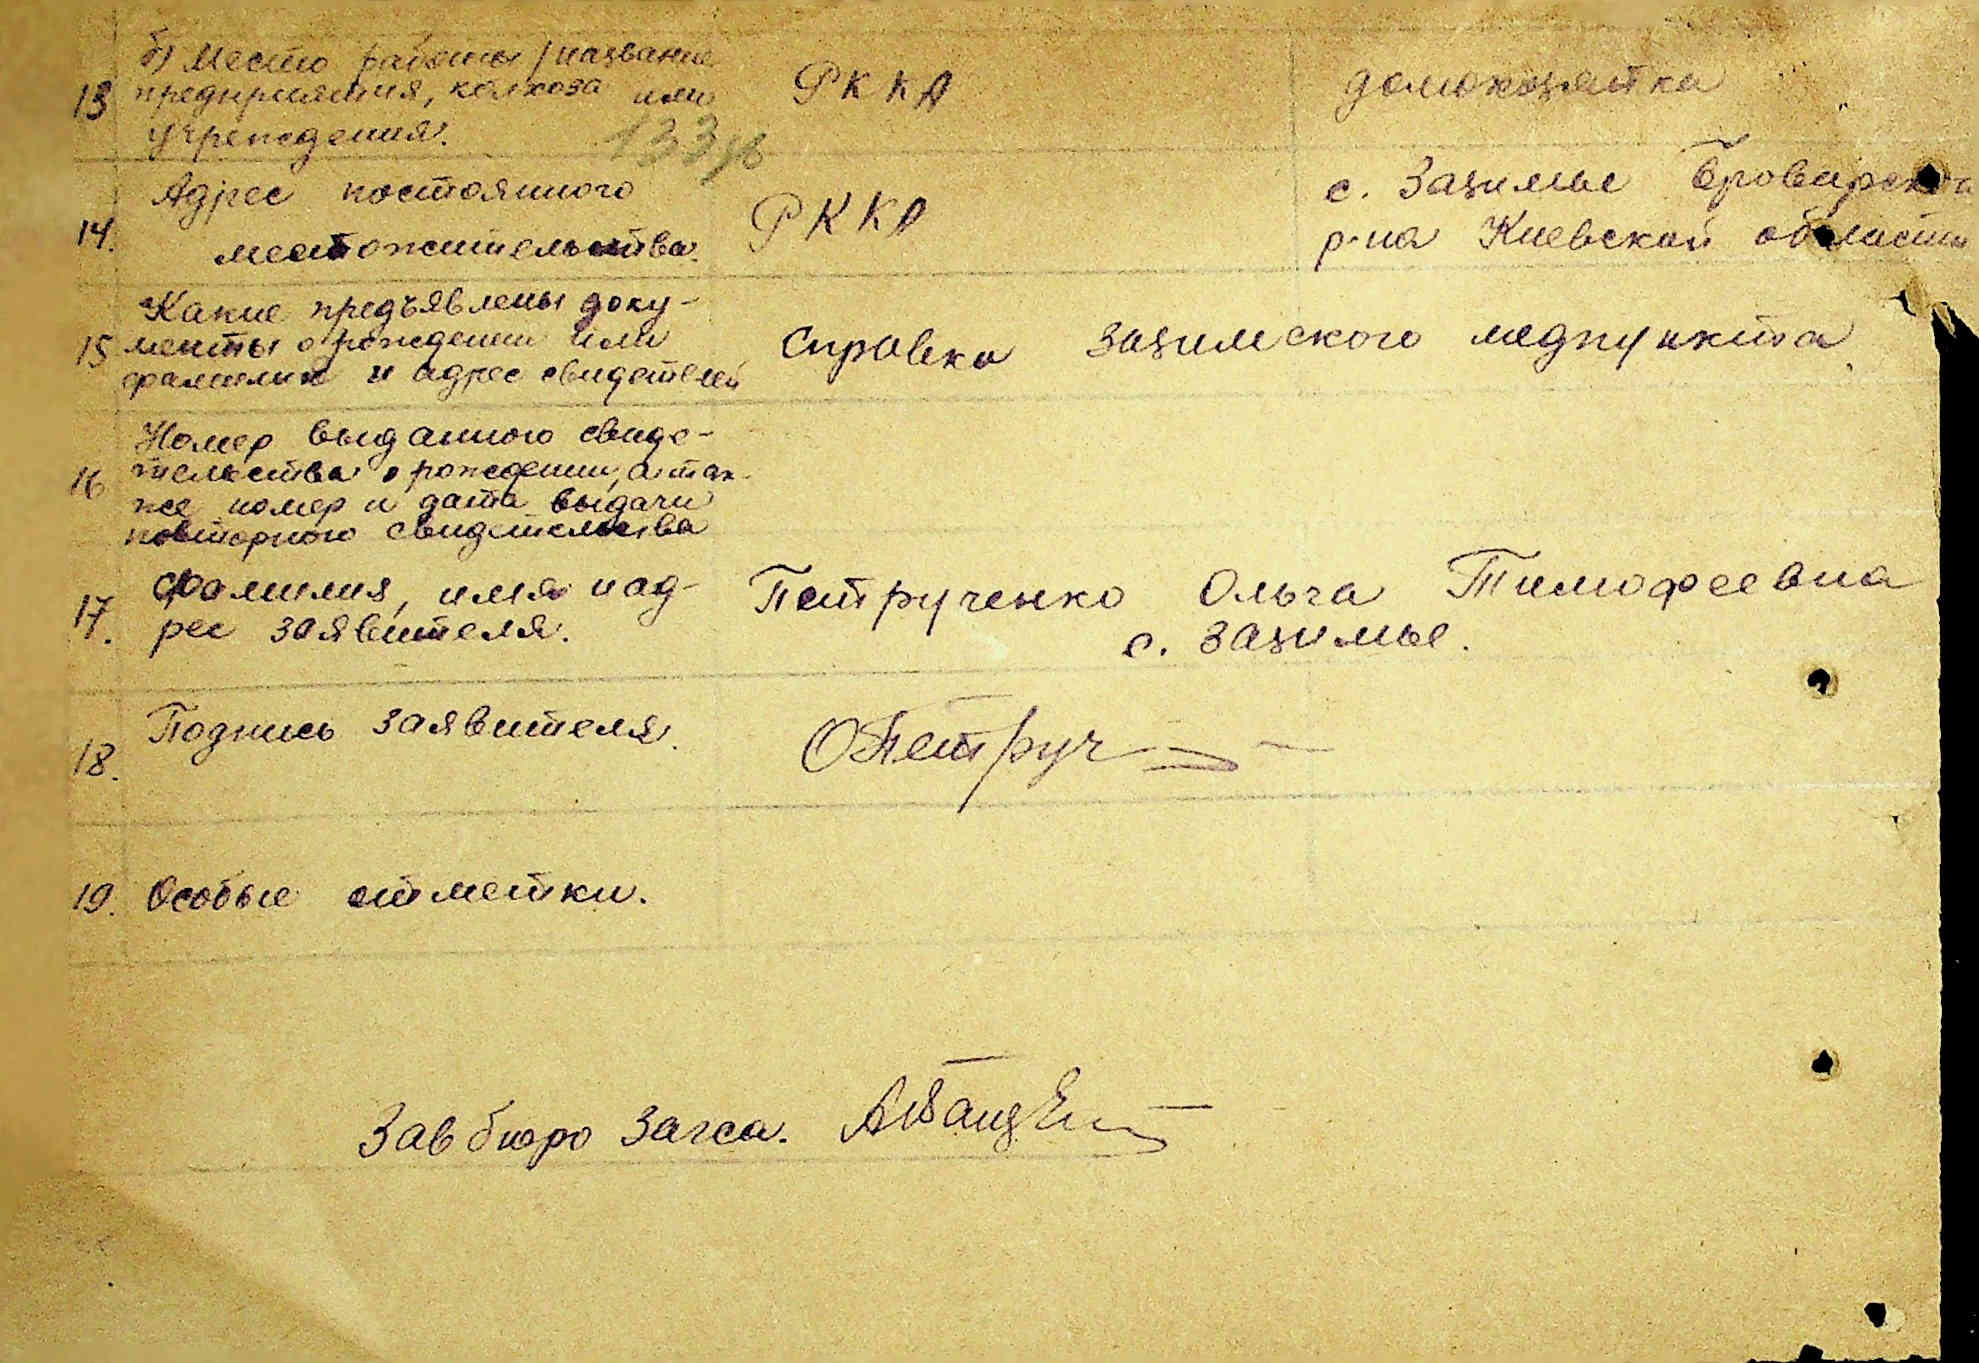 б) Место работы /название
13 предприятия, колхоза или
учреждения.
РККА
домохозяйка
133
14. Адрес постоянного
местожительства.
РККА
с. Зазимье Броварского
р-на Киевской области
Какие предъявлены доку-
15 менты о рождении или
фамилии и адрес свидетелей
Справка Зазимского медпункта
Номер выданного свиде-
16 тельства о рождении, а так-
же номер и дата выдачи
повторного свидетельства
17. Фамилия, имя и ад-
рес заявителя.
Петрученко Ольга Тимофеевна
с. Зазимье.
18. Подпись заявителя.
ОПетруч
19. Особые отметки.
Зав бюро Загса.